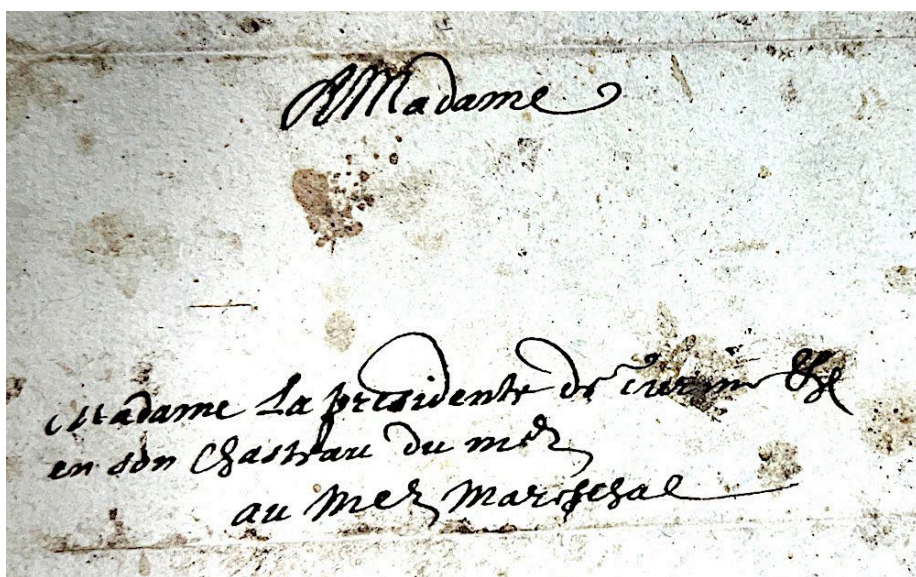 A Madame
Madame La presidente de
en son Chasteau du mez
au Mez Mareschal